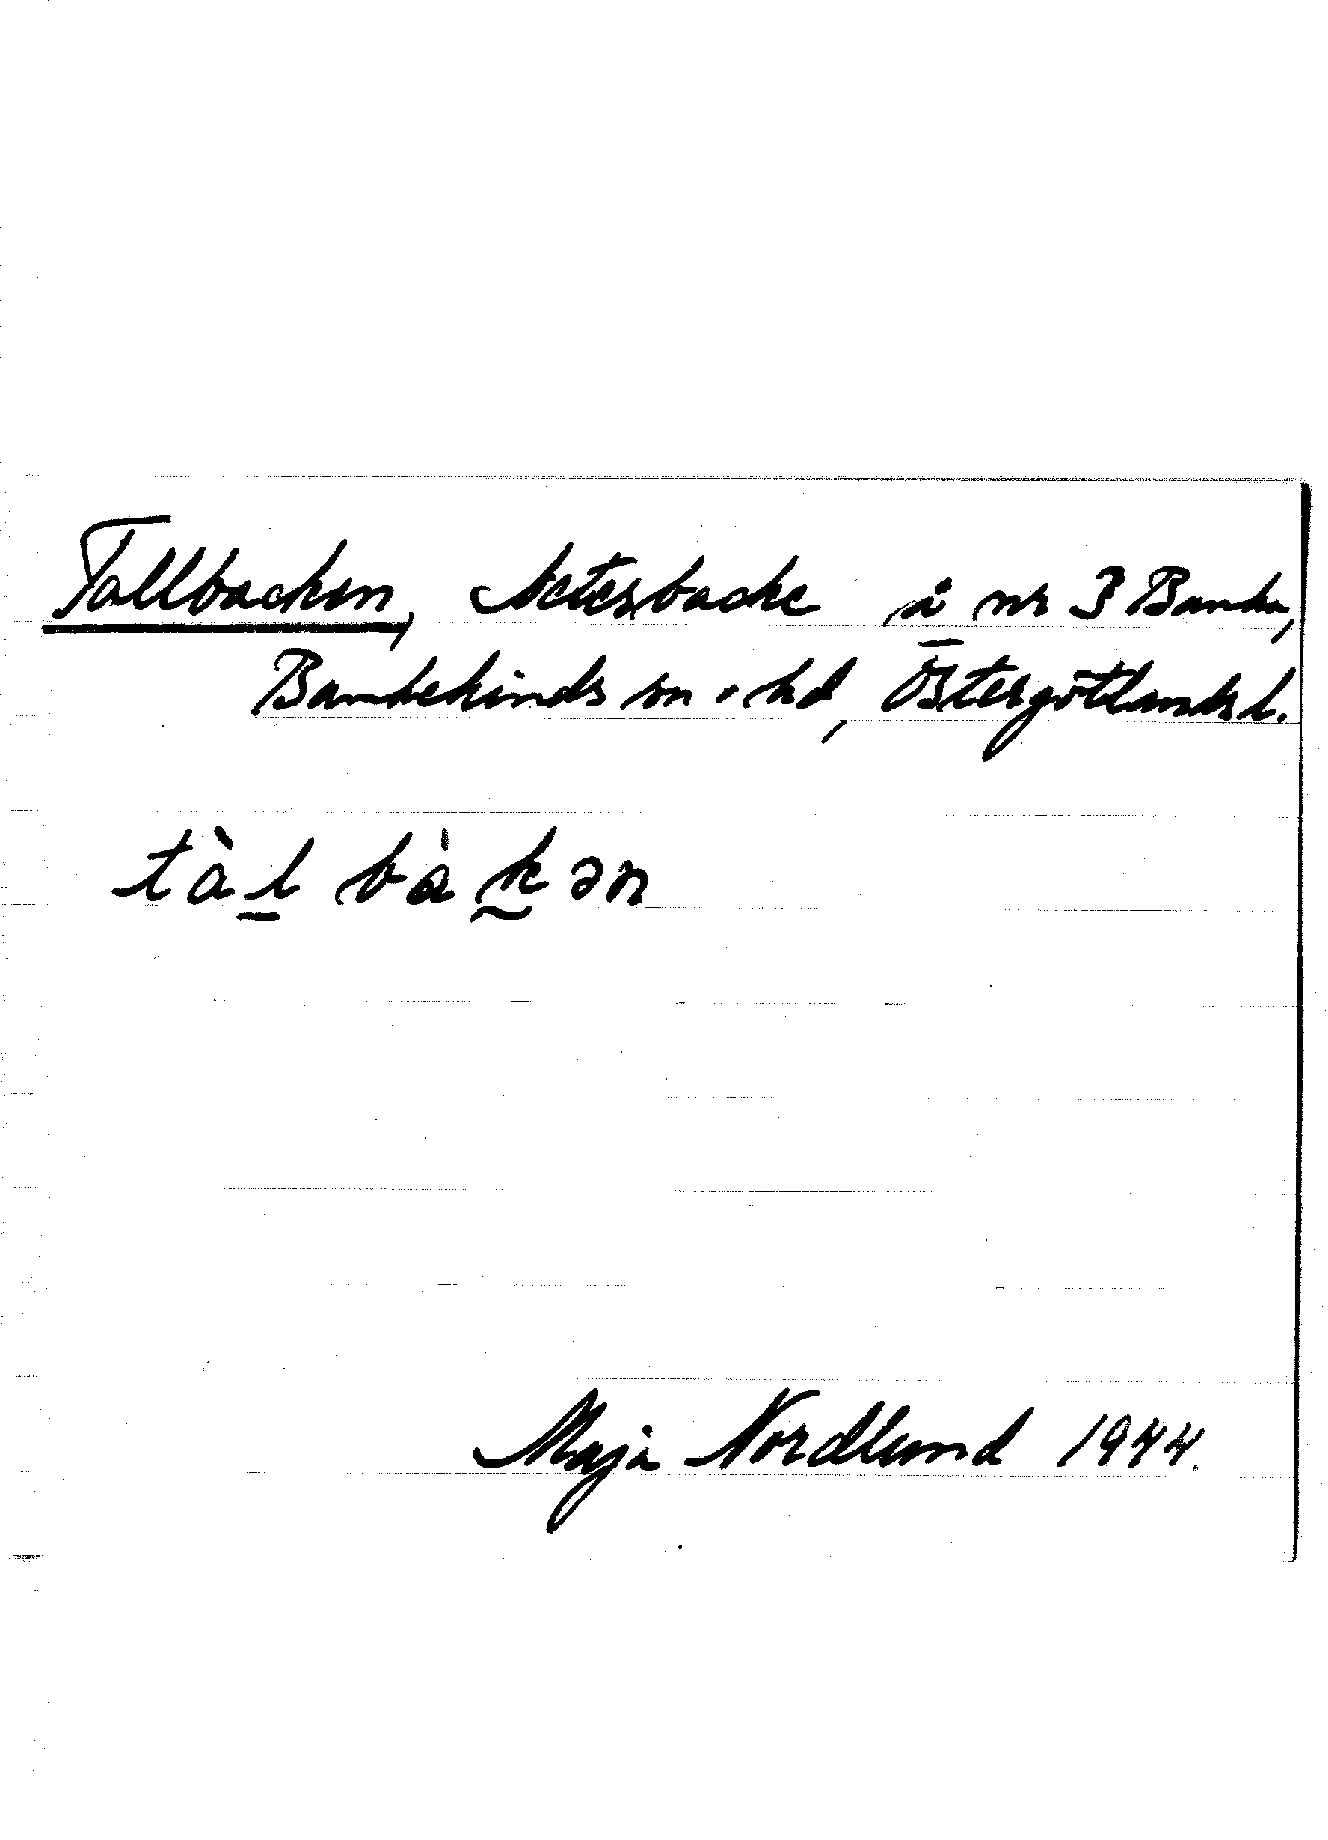 Tallbacken, Betesbacke å nr 3 Banka,
Bankekinds sn o. hd, Östergötlands l.
tàl bàkən
Maja Nordlund 1944.